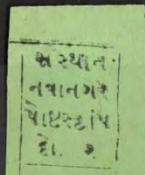 સંસ્થાન
નવાનગર
પોષ્ટસ્ટાંપ
દો. ૨